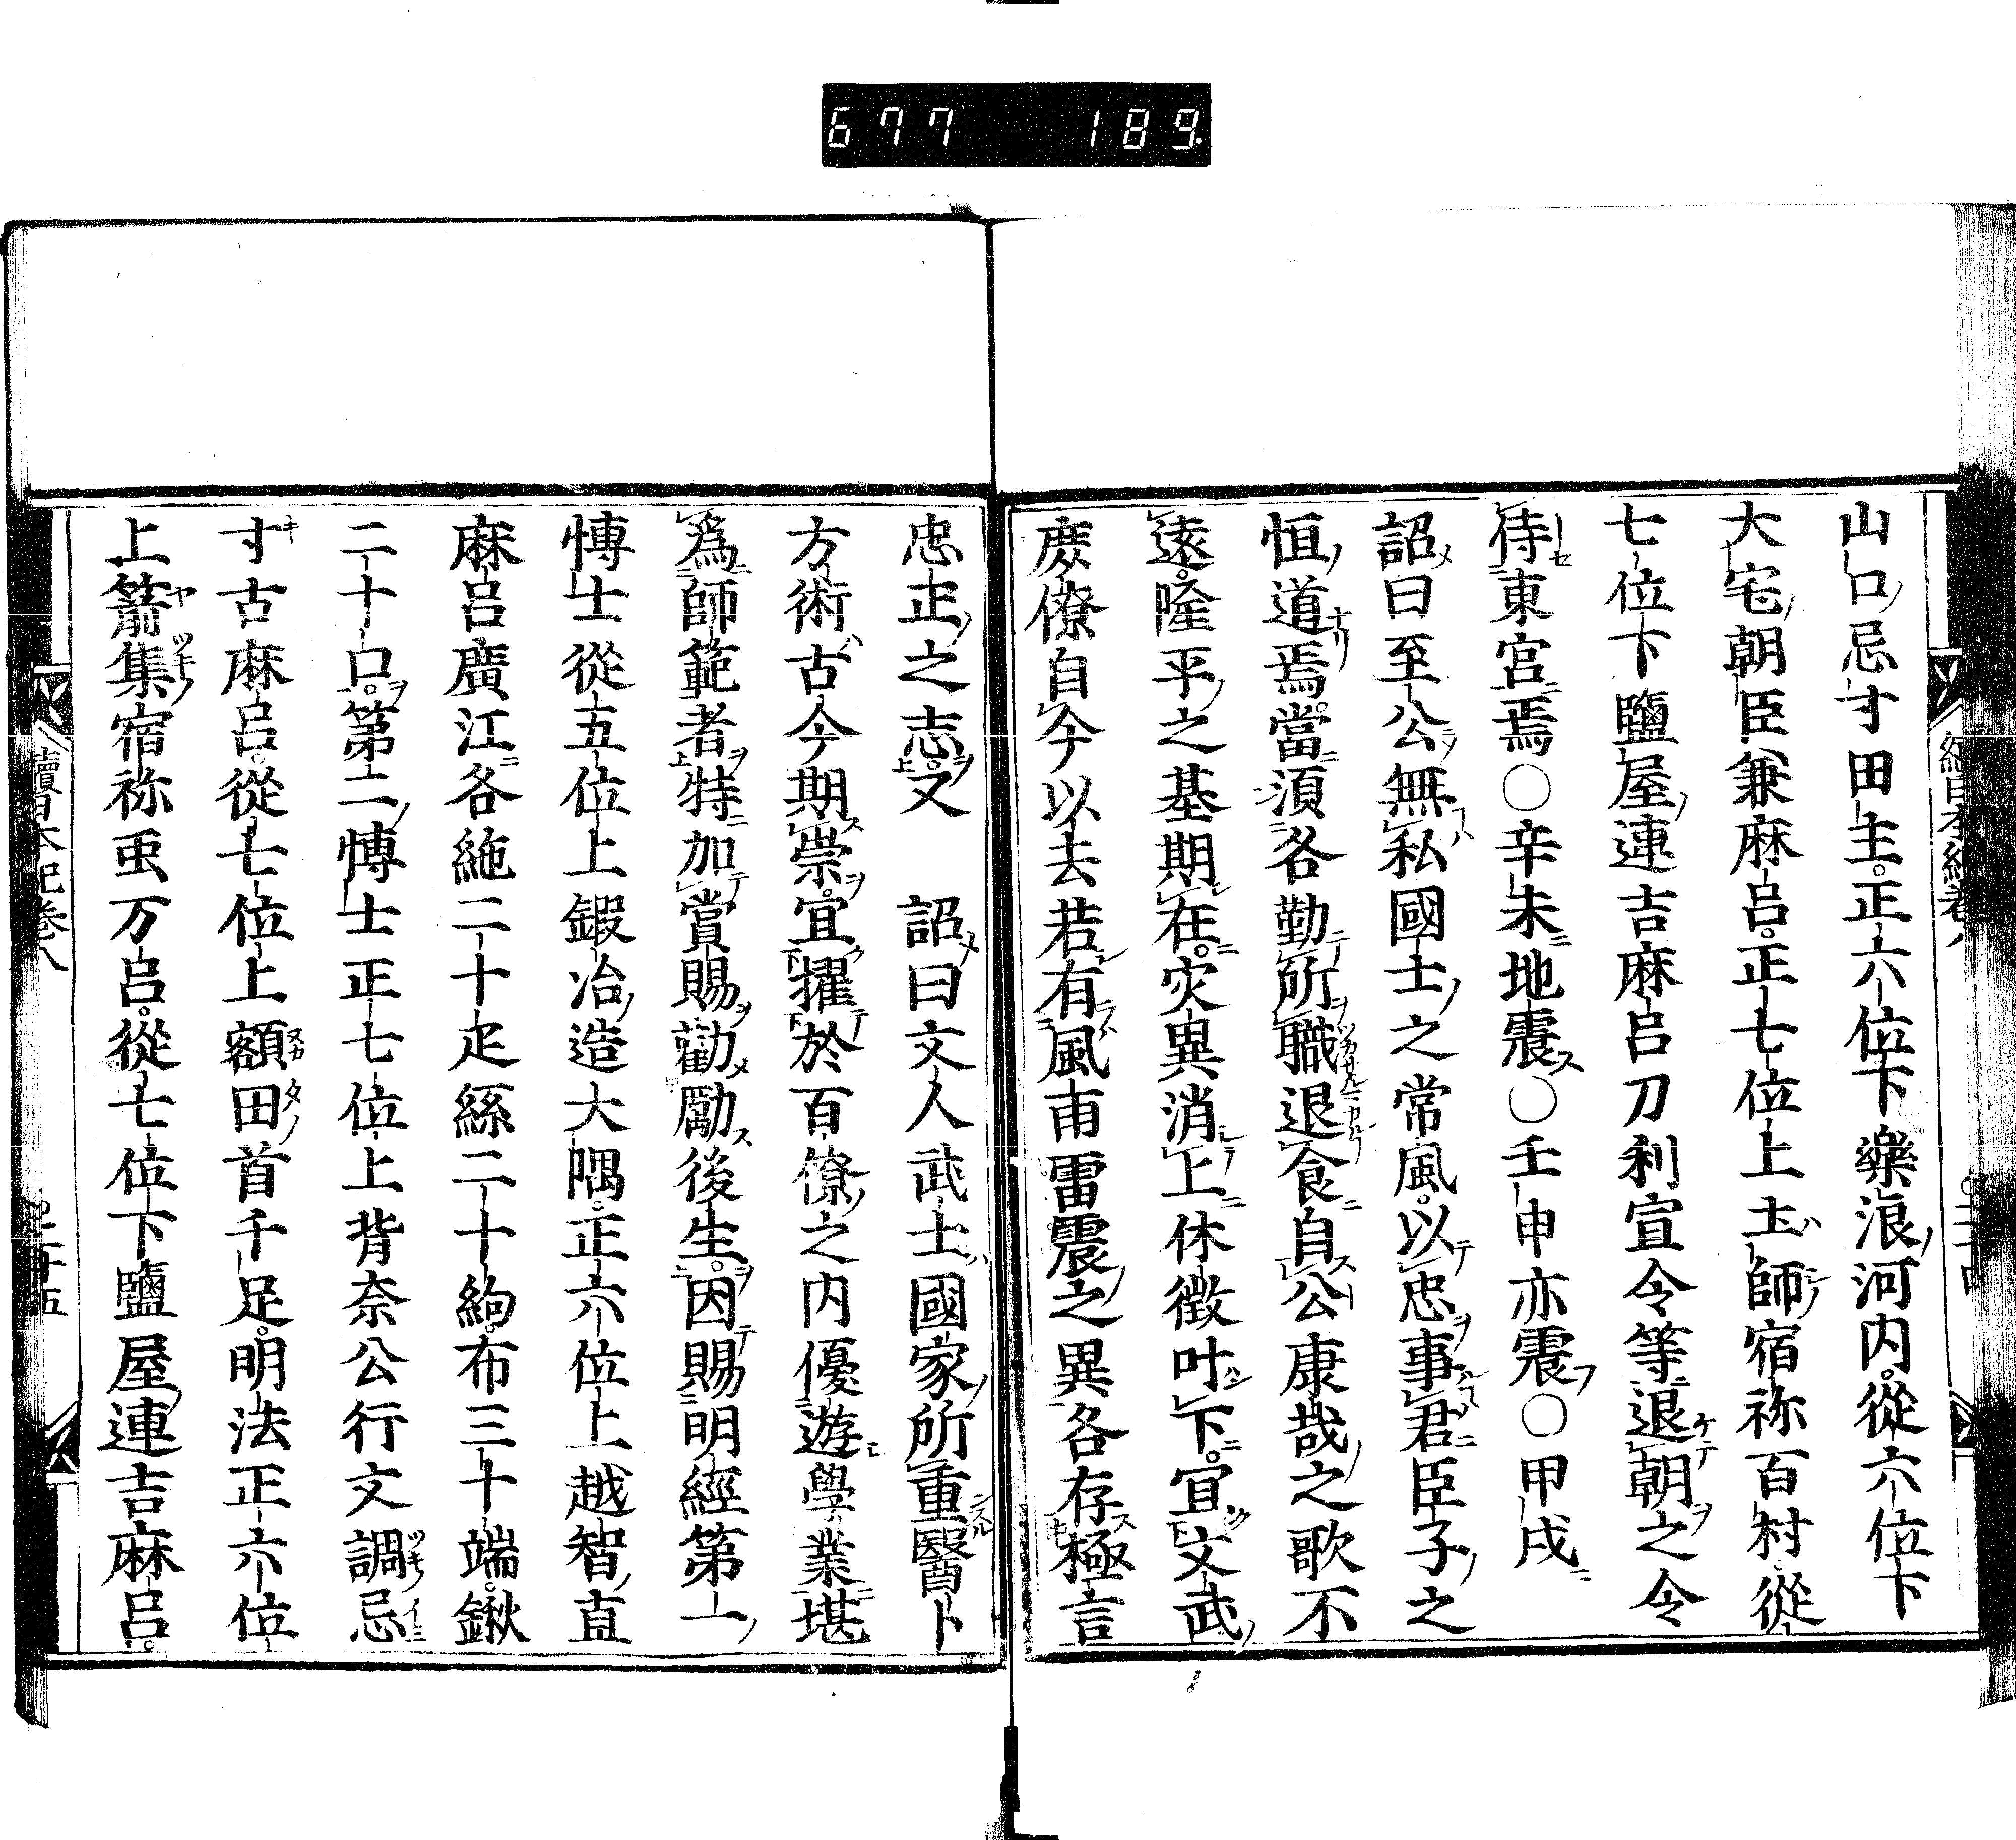 677 189
山口忌寸田主。正六位下樂浪河内。從六位下
大宅朝臣兼麻呂。正七位上土師宿祢百村。從
七位下鹽屋連吉麻呂刀利宣令等退朝之令
侍東宮焉○辛未地震○壬申亦震○甲戌
詔曰至公無私國士之常風。以忠事君臣子之
恒道焉。當須各勤所職退食自公康哉之歌不
遠。隆平之基期在。災異消上休徵叶下。宜文武
庶僚自今以去若有風雨雷震之異各存極言
忠正之志。又 詔曰文人武士國家所重醫卜
方術古今期崇。宜擢於百僚之内優遊學業堪
爲師範者特加賞賜勸勵後生。因賜明經第一
博士從五位上鍛冶造大隅。正六位上越智直
麻呂廣江各絁二十疋絲二十絇。布三十端。鍬
二十口。第二博士正七位上背奈公行文調忌
寸古麻呂。從七位上額田首千足。明法正六位
上箭集宿祢虫万呂。從七位下鹽屋連吉麻呂。
續日本紀卷八